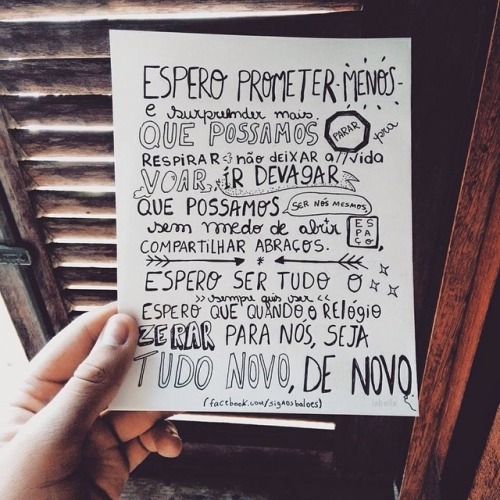 ESPERO PROMETER MENOS
e surpreender mais.
QUE POSSAMOS PARAR pra
RESPIRAR não deixar a vida
VOAR, ÍR DEVAGAR
QUE POSSAMOS SER NÓS MESMOS,
sem medo de abrir ESPAÇO,
COMPARTILHAR ABRAÇOS.
ESPERO SER TUDO O
>> sempre quis ser <<
ESPERO QUE QUANDO O RELÓGIO
ZERAR PARA NÓS, SEJA
TUDO NOVO, DE NOVO.
(facebook.com/signosbaloes)